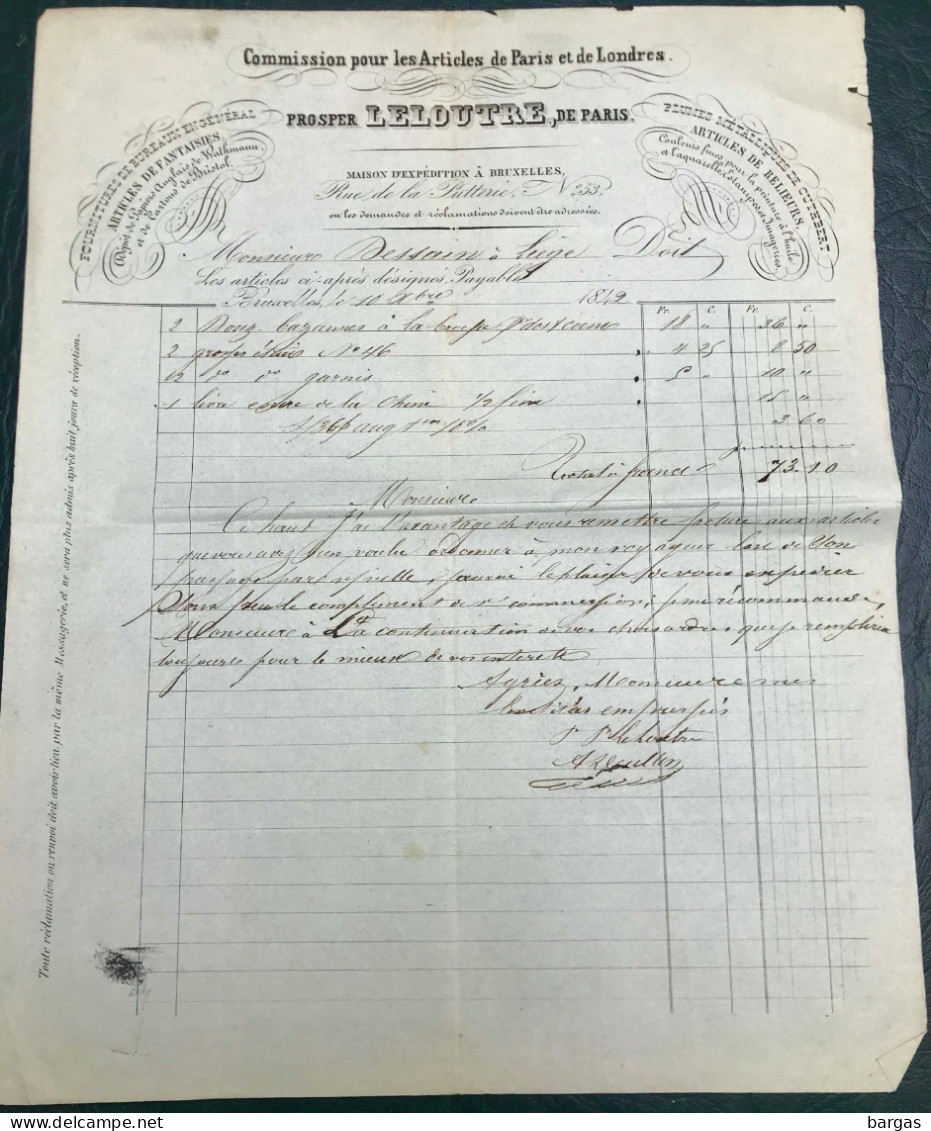 Commission pour les Articles de Paris et de Londres.
PROSPER LELOUTRE, DE PARIS.
FOURNITURES DE BUREAUX EN GÉNÉRAL
ARTICLES DE FANTAISIES,
Dépôt de Papiers Anglais de Wathmann,
et de Cartons de Bristol.
PLUMES MÉTALLIQUES DE CUTHBERT
ARTICLES DE RELIEURS,
Couleurs fines pour la peinture à l'huile
et l'aquarelle, Estampes et Imageries.
MAISON D'EXPÉDITION À BRUXELLES,
Rue de la Putterie, No 233.
ou les demandes et réclamations doivent être adressées.
Monsieur Dessain à Liège Doit
Les articles ci-après désignés, Payable
Bruxelles, le 10 Xbre 1842
Fr. C. Fr. C.
2 Douz bazannes à la 18 " 36 "
2 grosses No 46 4 25 8 50
2 do do garnis 5 " 10 "
1 de la Chine 1/2 15 "
aug 3 60
Total francs 73.10
Monsieur
Ci haut J'ai l'avantage de vous remettre facture aux articles
que vous avez bien voulu ordonner à mon voyageur
le plaisir de vous expédier
pour le compliment de commission, je me récommande,
Monsieur à la continuation de vos chers ordres que je remplirai
toujours pour le mieux de vos interets
Agréez, Monsieur mes
sincères
Leloutre
Toute réclamation ou renvoi doit avoir lieu par la même Messagerie, et ne sera plus admis après huit jours de réception.
bargas